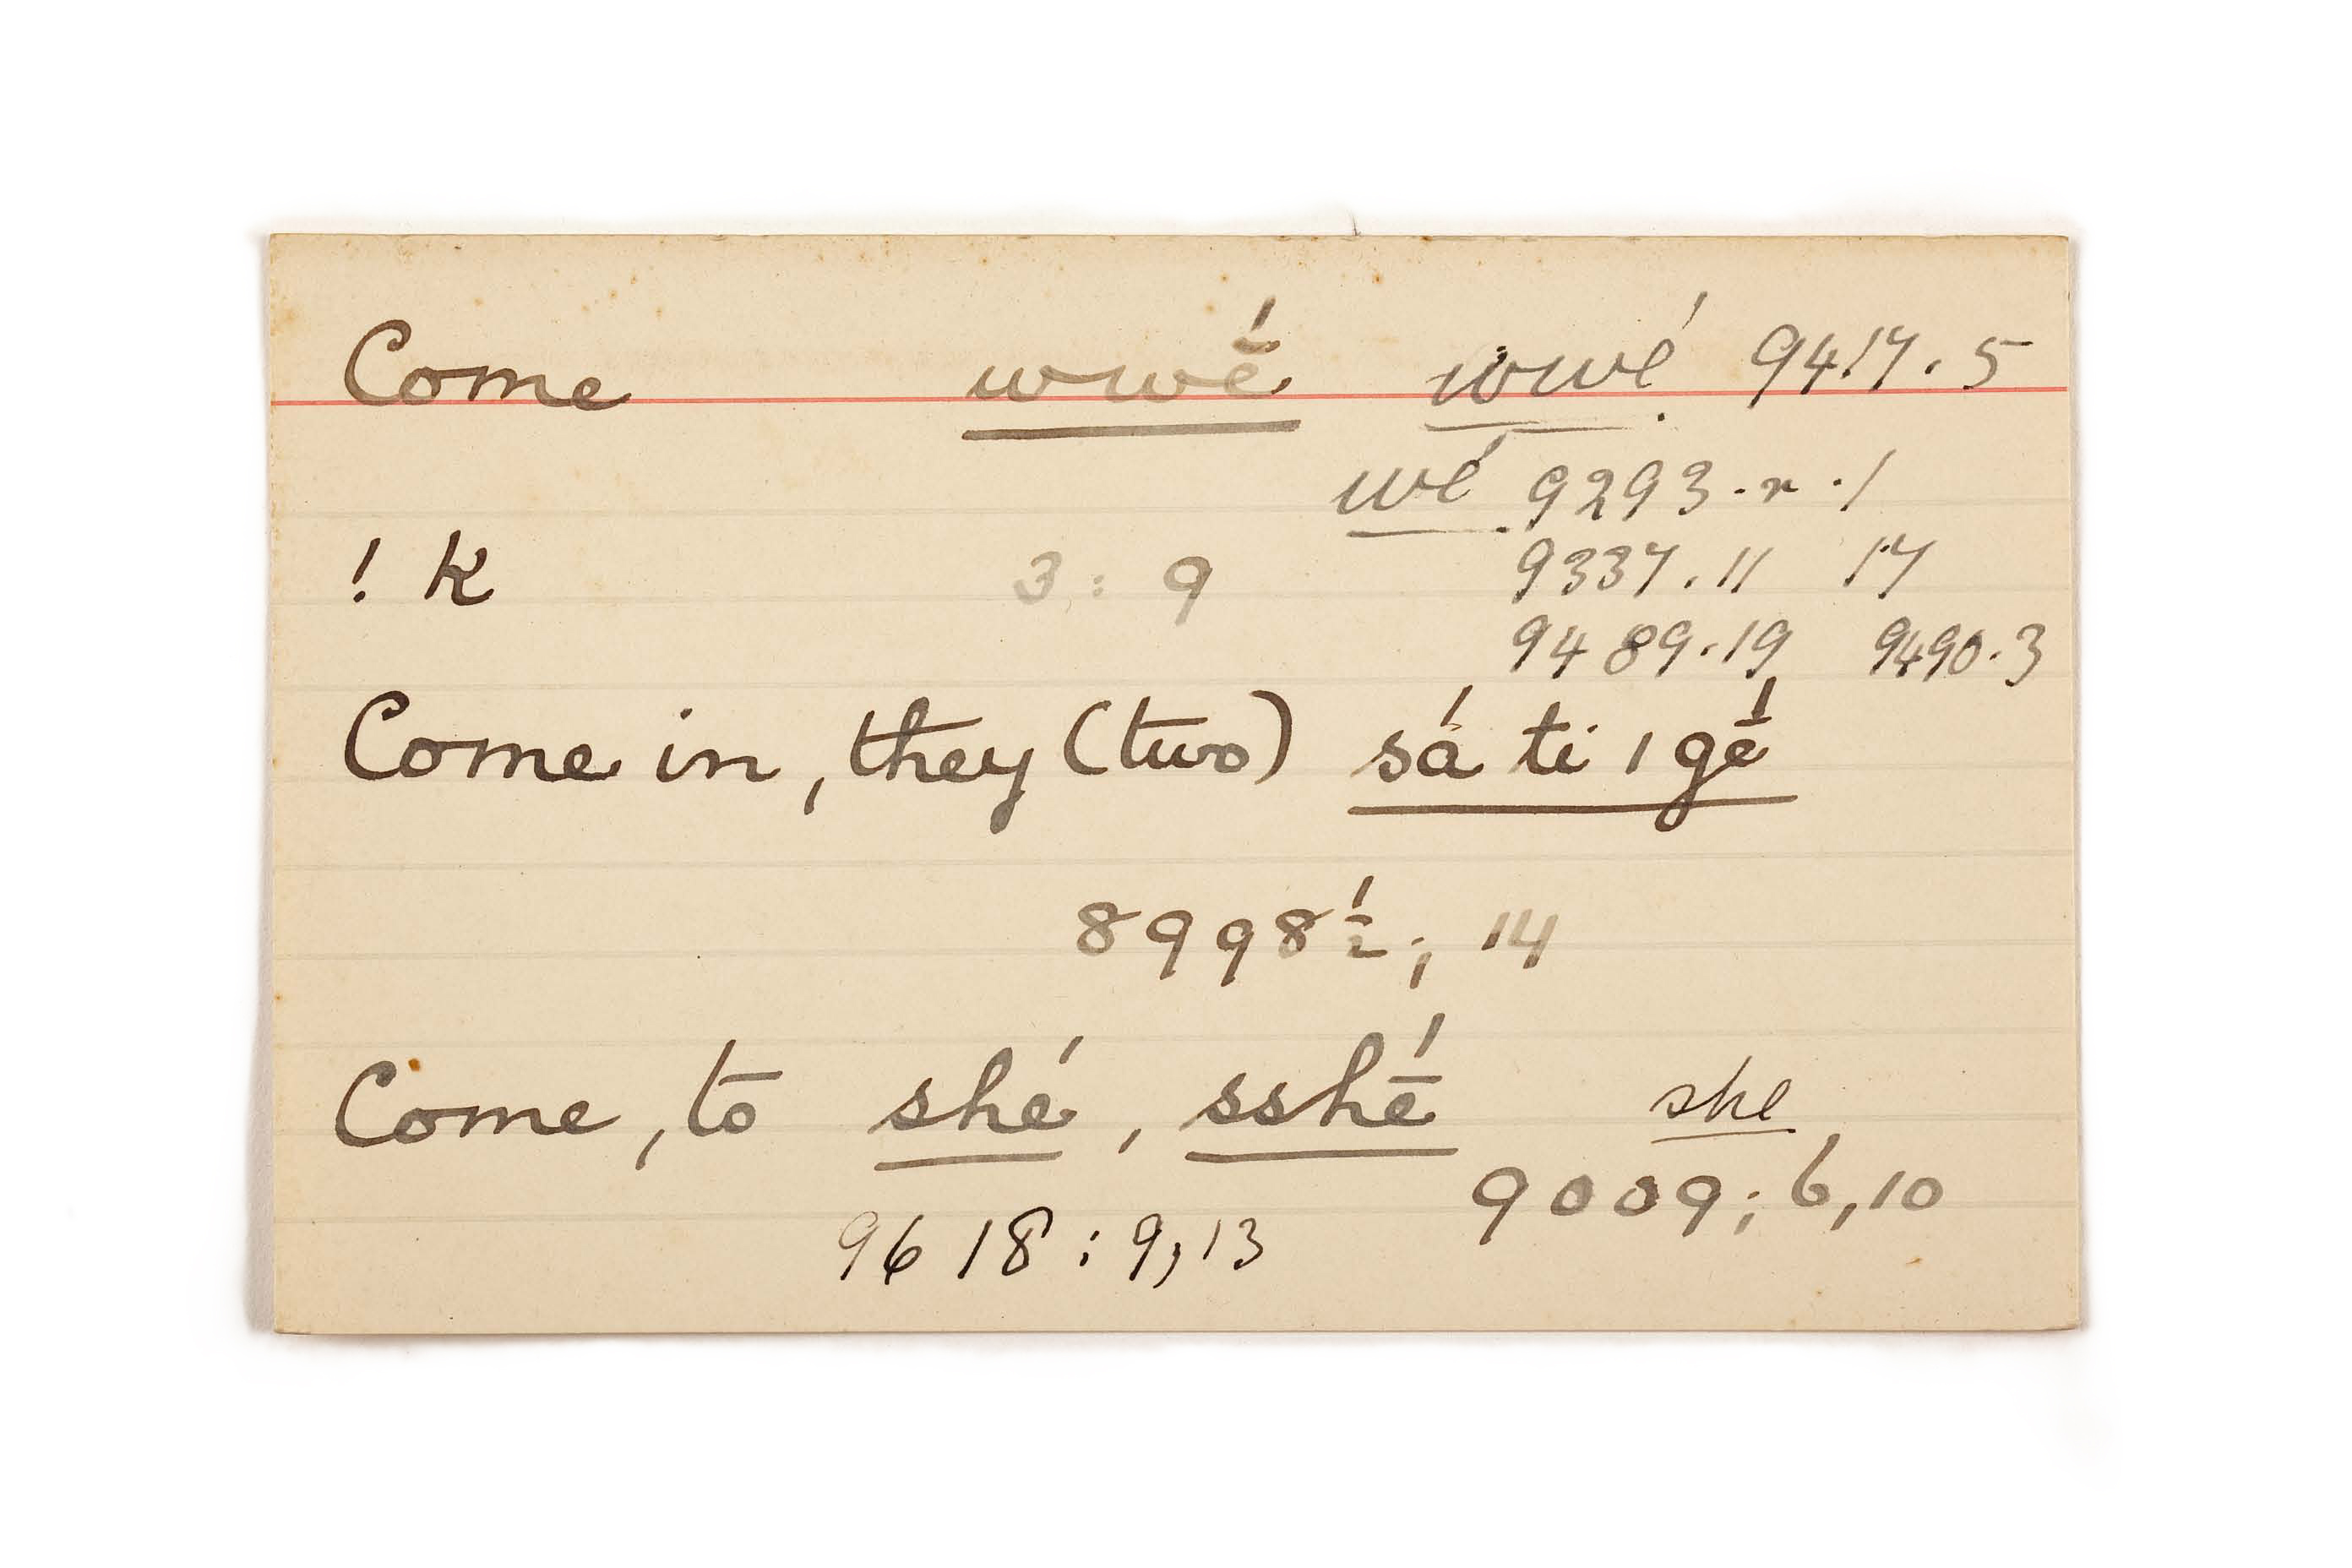 Come wwḗ wwé 9417.5
wé 9293.r.1
! k 3 : 9 9337.11 17
9489.19 9490.3
Come in, they (two) sá ti ı gḗ
8998½; 14
Come, to shé, sshḗ she
9009; 6,10
9618 : 9,13